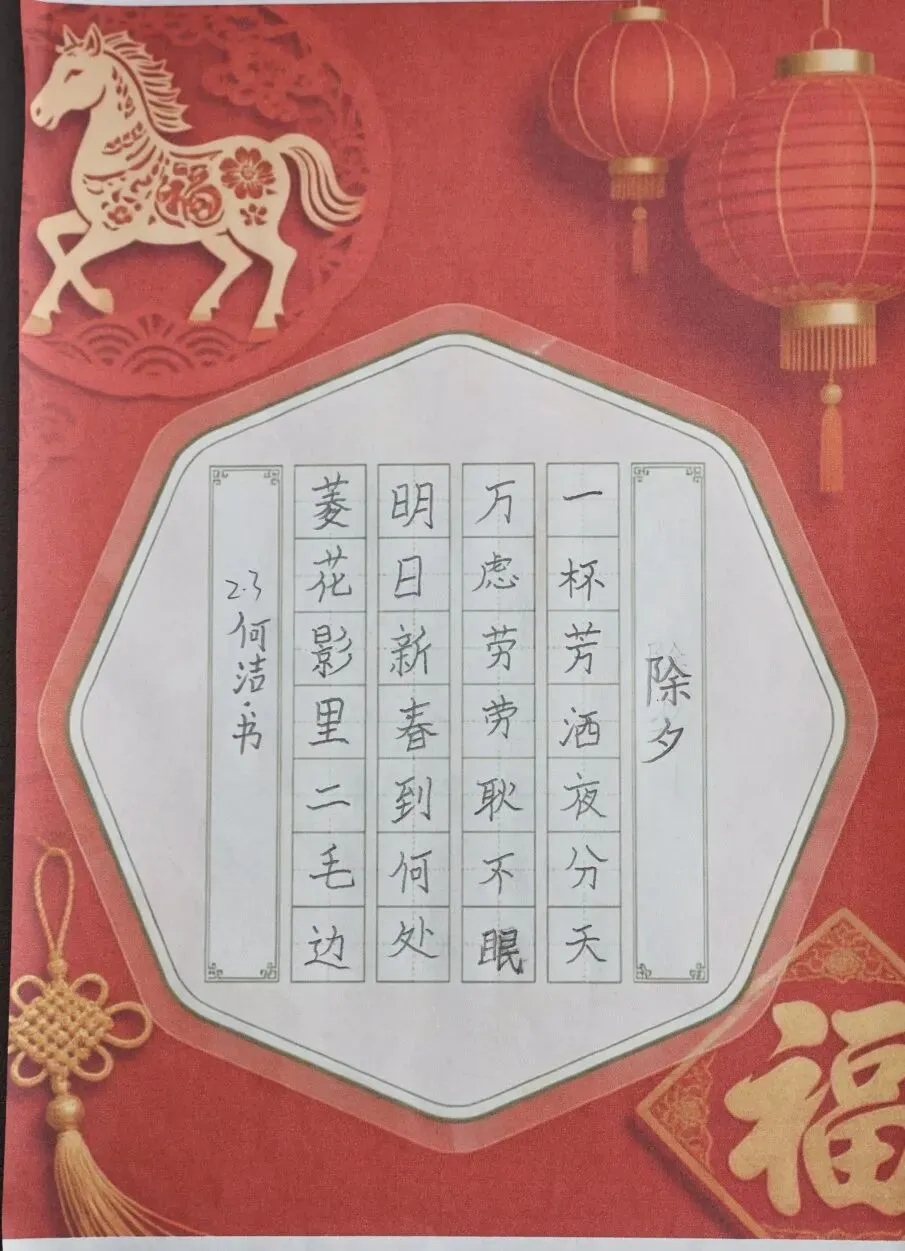 除夕
一杯芳洒夜分天
万虑劳劳耿不眠
明日新春到何处
菱花影里二毛边
2.3何洁·书
福
福